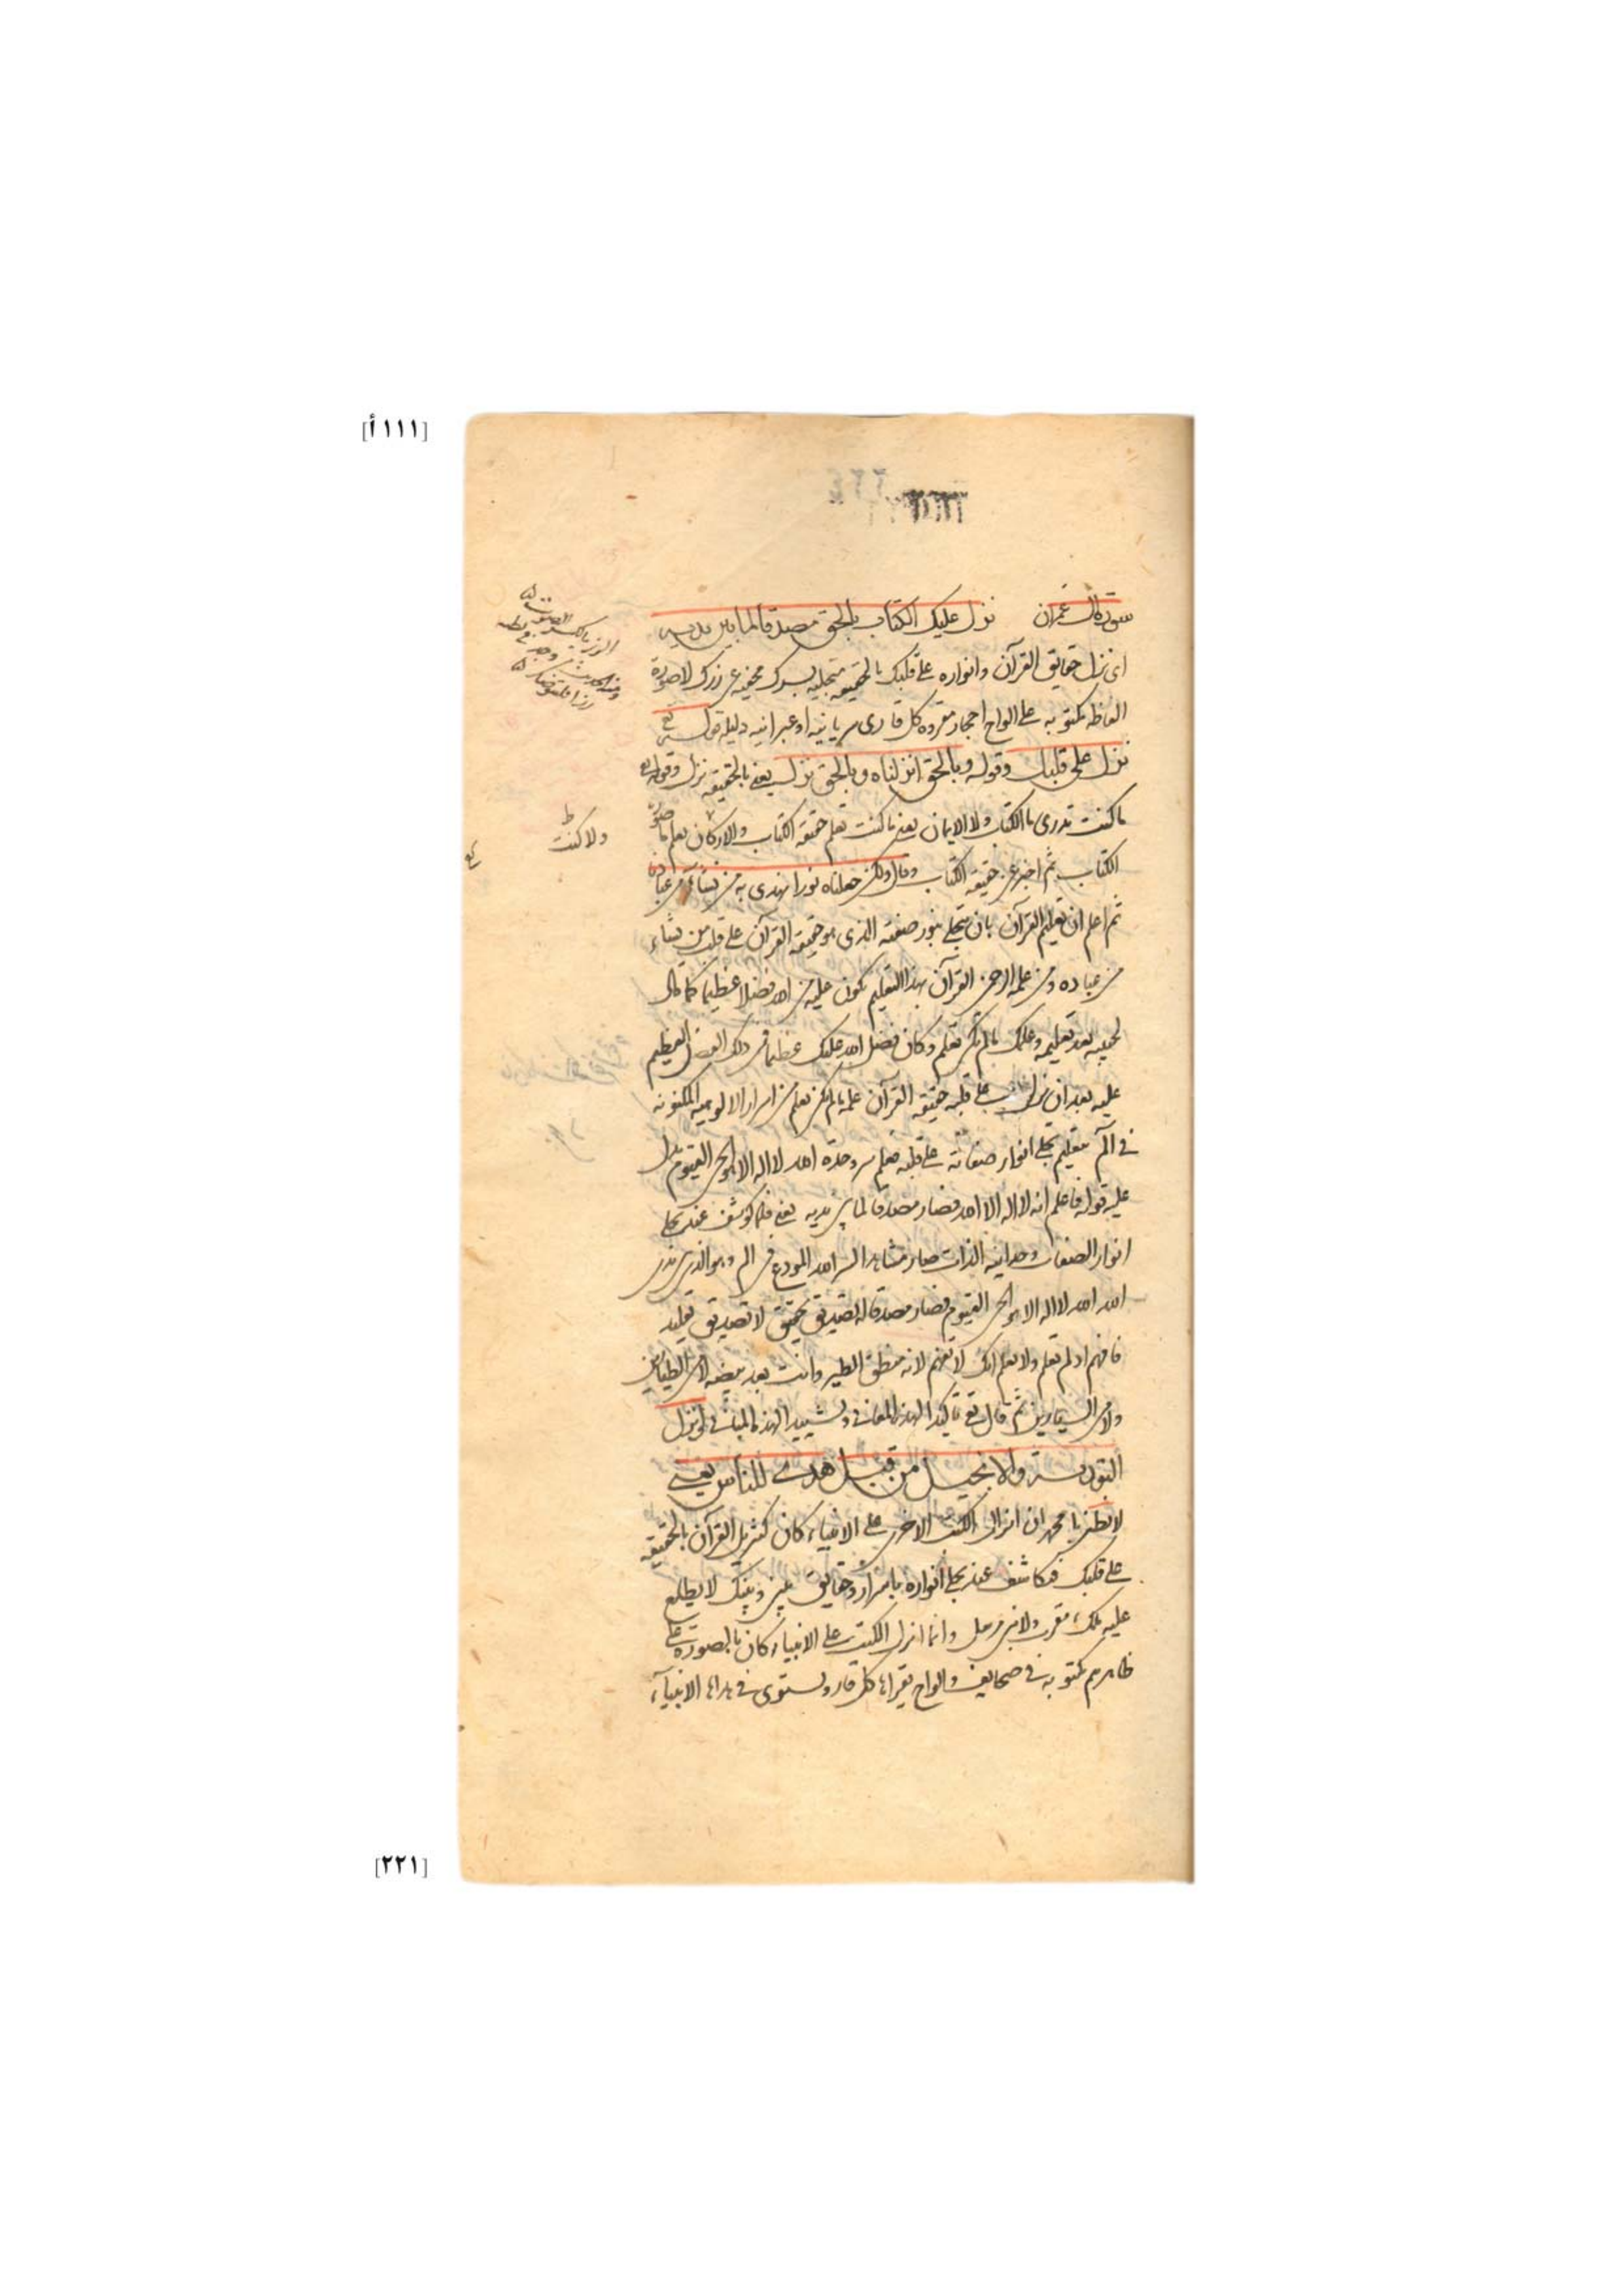 [١١١أ]
سورة آل عمران نزل عليك الكتاب بالحق مصدقا لما بين يديه
اى نزل حقايق القرآن وانواره على قلبك بالحقيقه متجليه لسرك مخفيه عن زرك لا صورة
الفاظه مكتوبه على الواح احجار مقروه كل قارى سريانيه او عبرانيه دليله قول تع
نزل على قلبك وقوله وبالحق انزلناه وبالحق نزل يعنى بالحقيقه نزل وقوله تع
ما كنت تدرى ما الكتاب ولا الايمان يعنى ما كنت تعلم حقيقه الكتاب والاركان تعلم ما صورة
الكتاب ثم اخبر عن حقيقه الكتاب وقال ولكن جعلناه نورا نهدى به من نشآء من عبادنا
ثم اعلم ان تعليم القرآن بان يتجلى بنور صفته الذى هو حقيقه القرآن على قلب من يشاء
من عباده ومن علمه الرحمن القرآن بهذا التعليم يكون عليه من الله فضلا عظيما كما قال
لحبيبه بعد تعليمه وعلمك ما لم تكن تعلم وكان فضل الله عليك عظيما فمن ذلك الفضل العظيم
عليه بعد ان نزل على قلبه حقيقه القرآن علمه ما لم يكن تعلم من اسرار الالوهيه المكنونه
فى آلم بتعليم تجلى انوار صفاته على قلبه فعلم سر وحدة الله لا اله الا هو الحى القيوم يدل
عليه قوله فاعلم انه لا اله الا الله فصار مصدقا لما بين يديه يعنى فلما كوشف عند تجلى
انوار الصفات وحدانيه الذات صار مشاهدا لسر الله المودع فى الم وهو الذى بين يدى
الله الله لا اله الا هو الحى القيوم فصار مصدقا له تصديق تحقيق لا تصديق تقليد
فافهم اذ لم تعلم ولا تعلم انك لا تفهم لانه منطق الطير وانت بعد بيضه لا من الطيارين
ولا من السيارين ثم قال تع تاكيدا لهذه المعانى وتشييدا لهذه المبانى وانزل
التورىة والانجيل من قبل هدى للناس يعنى
لا تظن يا محمد ان انزال الكتب الاخر على الانبياء كان كتنزيل القرآن بالحقيقه
على قلبك فتكاشف عند تجلى انواره باسرار وحقايق بينى وبينك لا يطلع
عليه ملك مقرب ولا نبى مرسل وانما انزل الكتب على الانبياء كان بالصورة على
ظاهرهم مكتوبه فى صحايف والواح يقراها كل قار ويستوى فى هداها الانبيآء
الزر بالكسر الصوت
ولا كنت
[٢٢١]